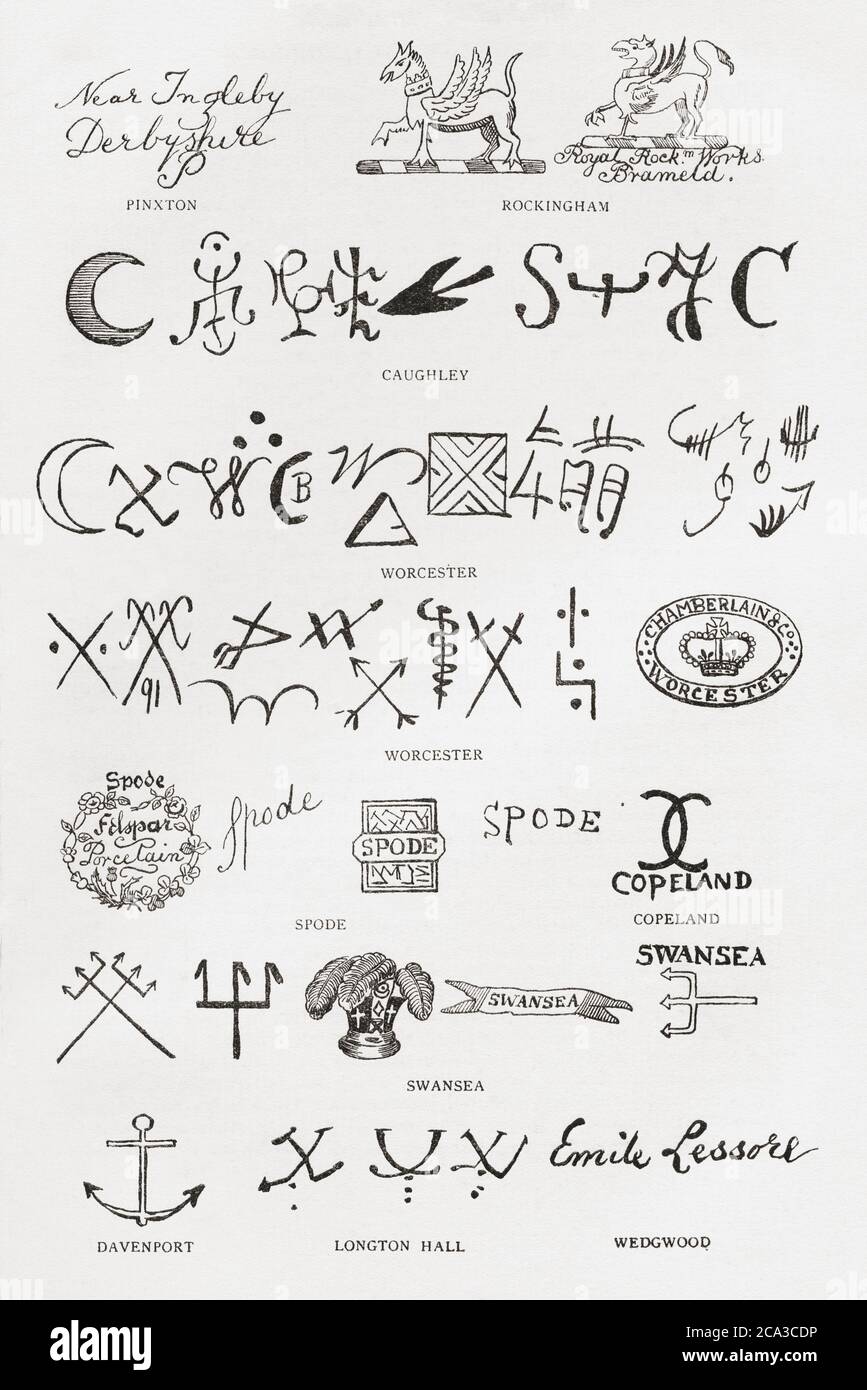 Near Ingleby
Derbyshire
P
PINXTON
Royal Rock.m Works
Brameld.
ROCKINGHAM
S Y C
CAUGHLEY
W C B W
WORCESTER
91
CHAMBERLAIN & Co
WORCESTER
WORCESTER
Spode
Felspar
Porcelain
Spode
SPODE
SPODE
SPODE
COPELAND
COPELAND
SWANSEA
SWANSEA
SWANSEA
Emile Lessore
DAVENPORT
LONGTON HALL
WEDGWOOD
alamy
Image ID: 2CA3CDP
www.alamy.com